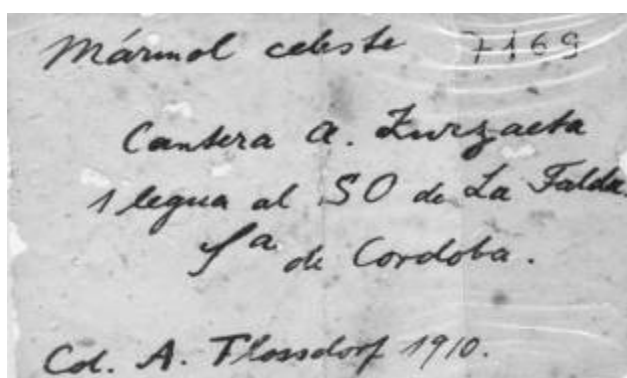 Mármol celeste 7169
Cantera A. Zurzaeta
1 legua al SO de La Falda.
Sª de Cordoba.
Col. A. Flossdorf 1910.